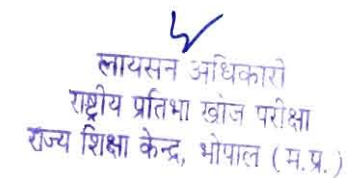 लायसन अधिकारी
राष्ट्रीय प्रतिभा खोज परीक्षा
राज्य शिक्षा केन्द्र, भोपाल (म.प्र.)